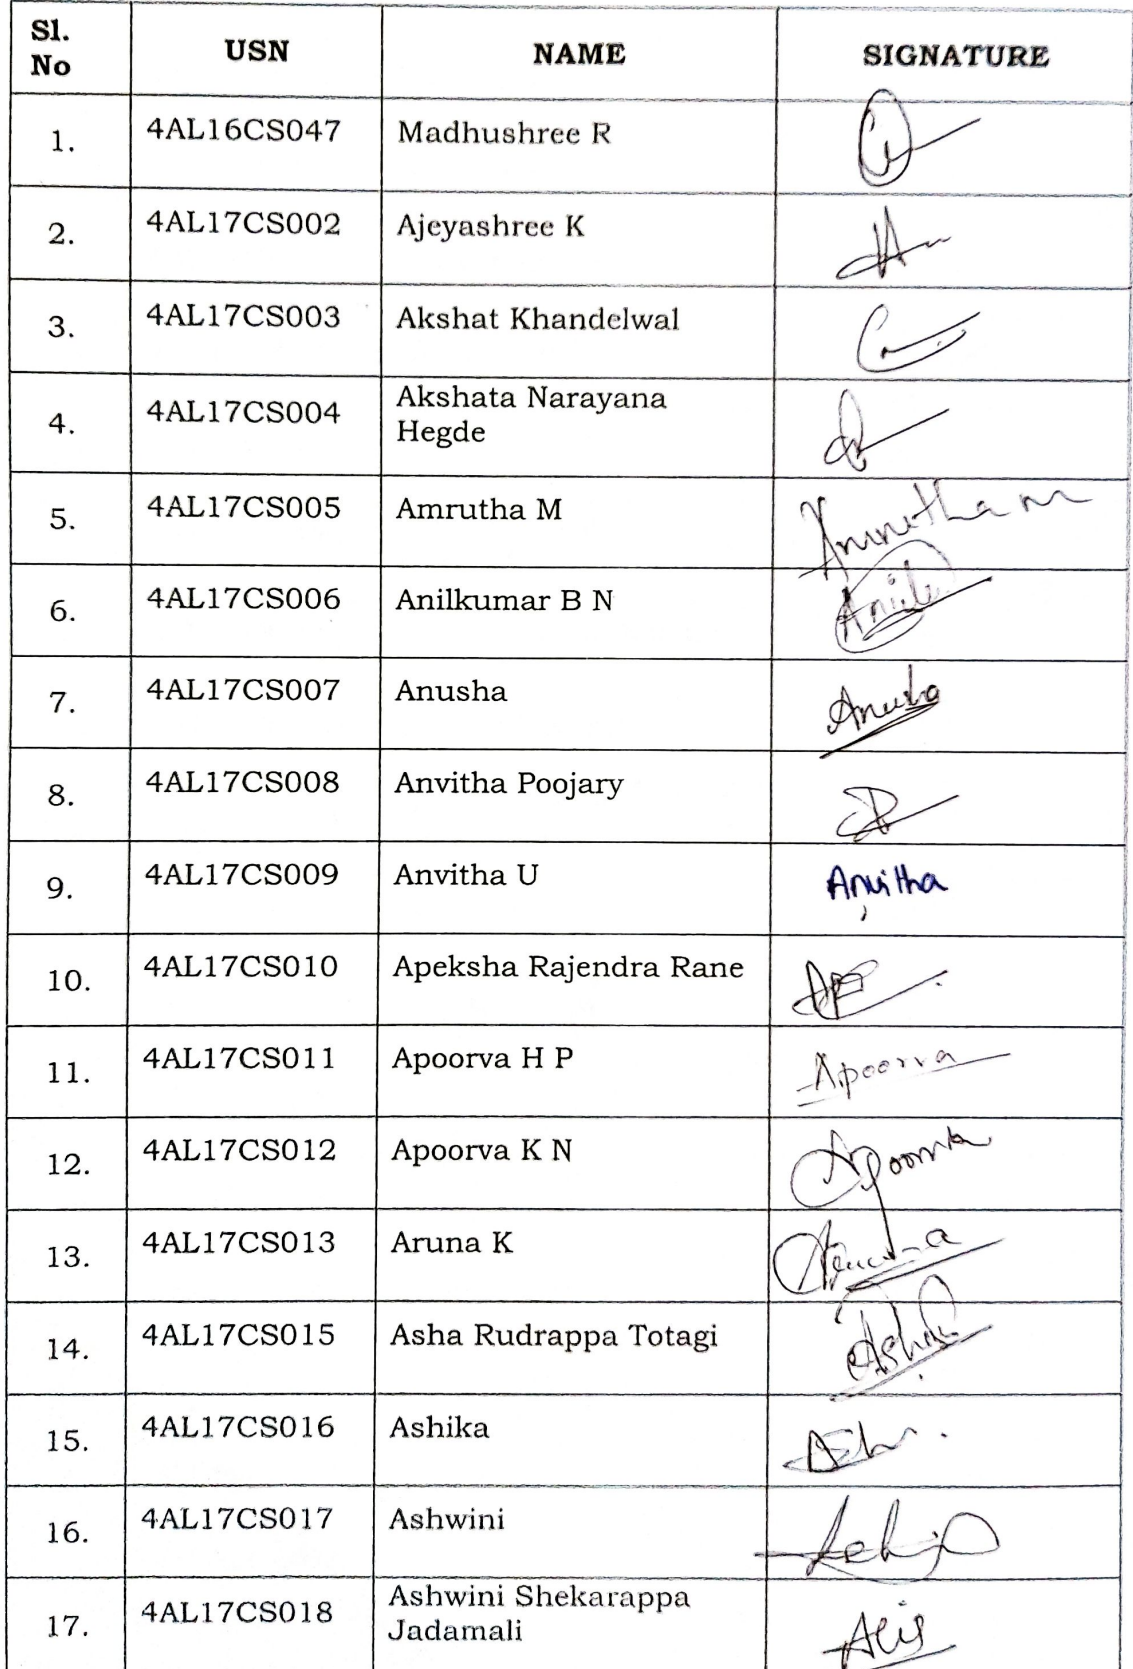 Sl. No USN NAME SIGNATURE
1. 4AL16CS047 Madhushree R
2. 4AL17CS002 Ajeyashree K
3. 4AL17CS003 Akshat Khandelwal
4. 4AL17CS004 Akshata Narayana
Hegde
5. 4AL17CS005 Amrutha M Amrutha m
6. 4AL17CS006 Anilkumar B N
7. 4AL17CS007 Anusha Anusha
8. 4AL17CS008 Anvitha Poojary
9. 4AL17CS009 Anvitha U Anvitha
10. 4AL17CS010 Apeksha Rajendra Rane
11. 4AL17CS011 Apoorva H P Apoorva
12. 4AL17CS012 Apoorva K N Apoorva
13. 4AL17CS013 Aruna K Aruna
14. 4AL17CS015 Asha Rudrappa Totagi
15. 4AL17CS016 Ashika
16. 4AL17CS017 Ashwini
17. 4AL17CS018 Ashwini Shekarappa
Jadamali